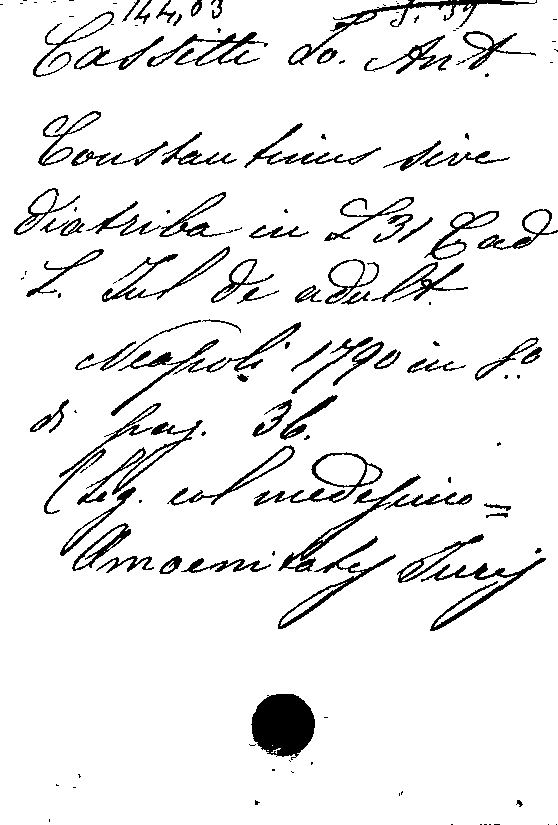 144,03
Cassitti Lo. Ant.
Constantinus sive
diatriba in L 31 Cad
L. Jul de adult.
Neapoli 1790 in 8.o
di pag. 36.
(Leg. col medesimo =
Amoenitates Juris